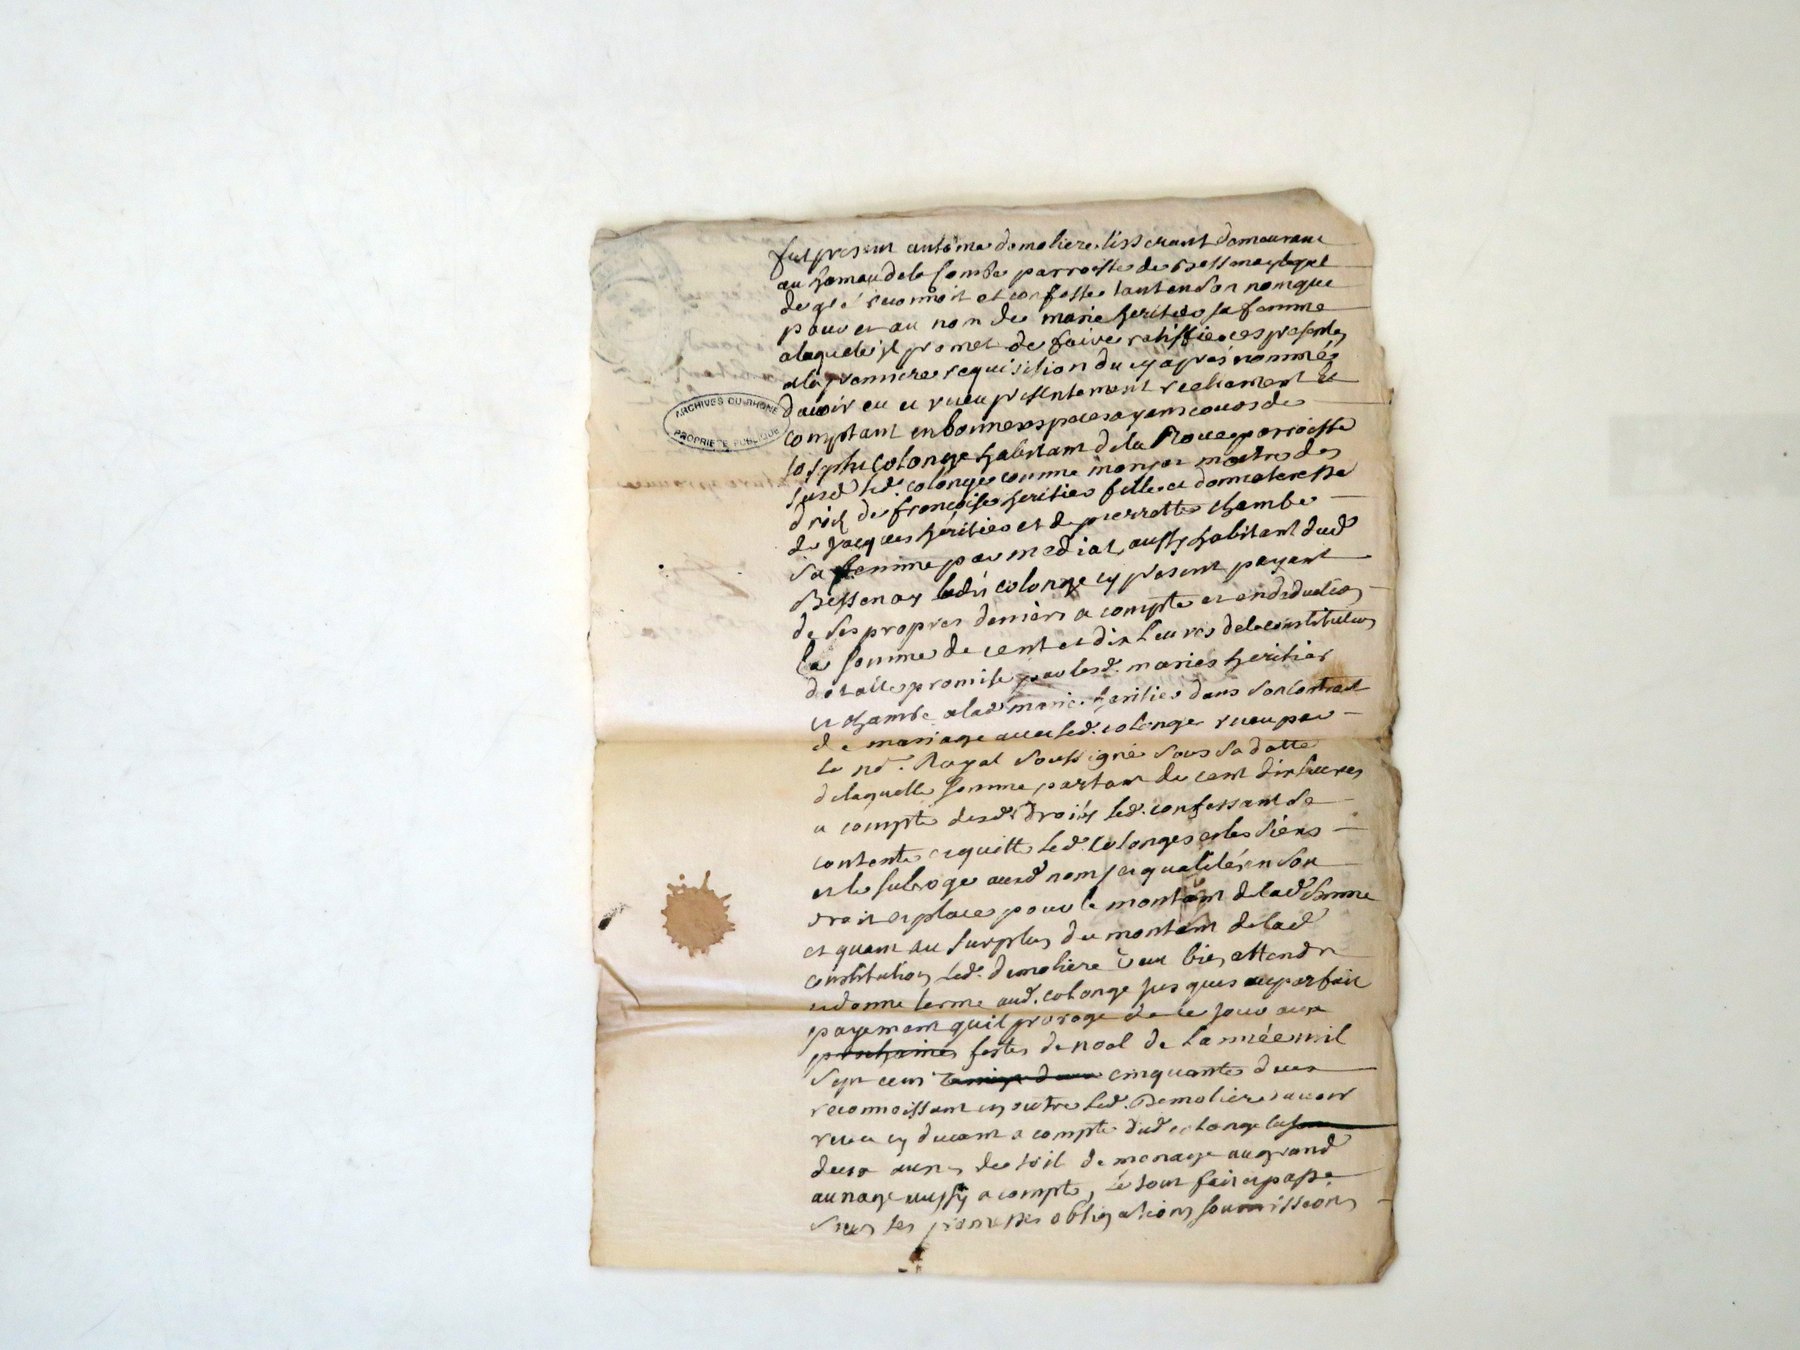 fut present antoine demoliere tisserant demeurant
au hamau dela Combe parroisse de Bessenay lequel
de gré reconnoit et confesse tant en son nom que
pour et au nom de marie heritier sa femme
alaquelle il promet de faire ratiffier ces presentes
ala premiere requisition du cy apres nommés
davoir eu et receu presentement reelement et
comptant en bonnes especes ayant cours de
joseph Colonge habitant dela parroisse
susd led. colonge comme maitre des
droits de françoise heritier fille et donnateresse
de Jacques heritier et de pierrette chambe
sa femme par mediat aussy habitant dud
Bessenay led. colonge cy present payant
de ses propres deniers a compte et en deduction
la somme de cent et dix livres dela constitution
dotalle promise par lesd. maries heritier
et chambe alad marie heritier dans son contract
de mariage avec led. colonge receu par
le nre. Royal soussigné sous sa datte
delaquelle somme partant de cent dix livres
a compte desd. droits led. confessant se
contente et quitte led. colonge et les siens
et le subroge aux nom et qualités en son
droit et place pour le montant de lad somme
et quant au surplus du montant de lad
constitution led. demoliere veut bien attendre
et donne terme aud. colonge jusques au parfait
payement quil proroge de ce jour aux
prochaines festes de noel de lannée mil
sept cent cinquante deux
reconnoissant en outre led. Demoliere avoir
receu cy devant a compte dud colonge
deux aunes de toil de menage au grand
aunage aussy a compte, le tout fait et passé
sous les promesses obligations soumissions
ARCHIVES DU RHONE
PROPRIETE PUBLIQUE